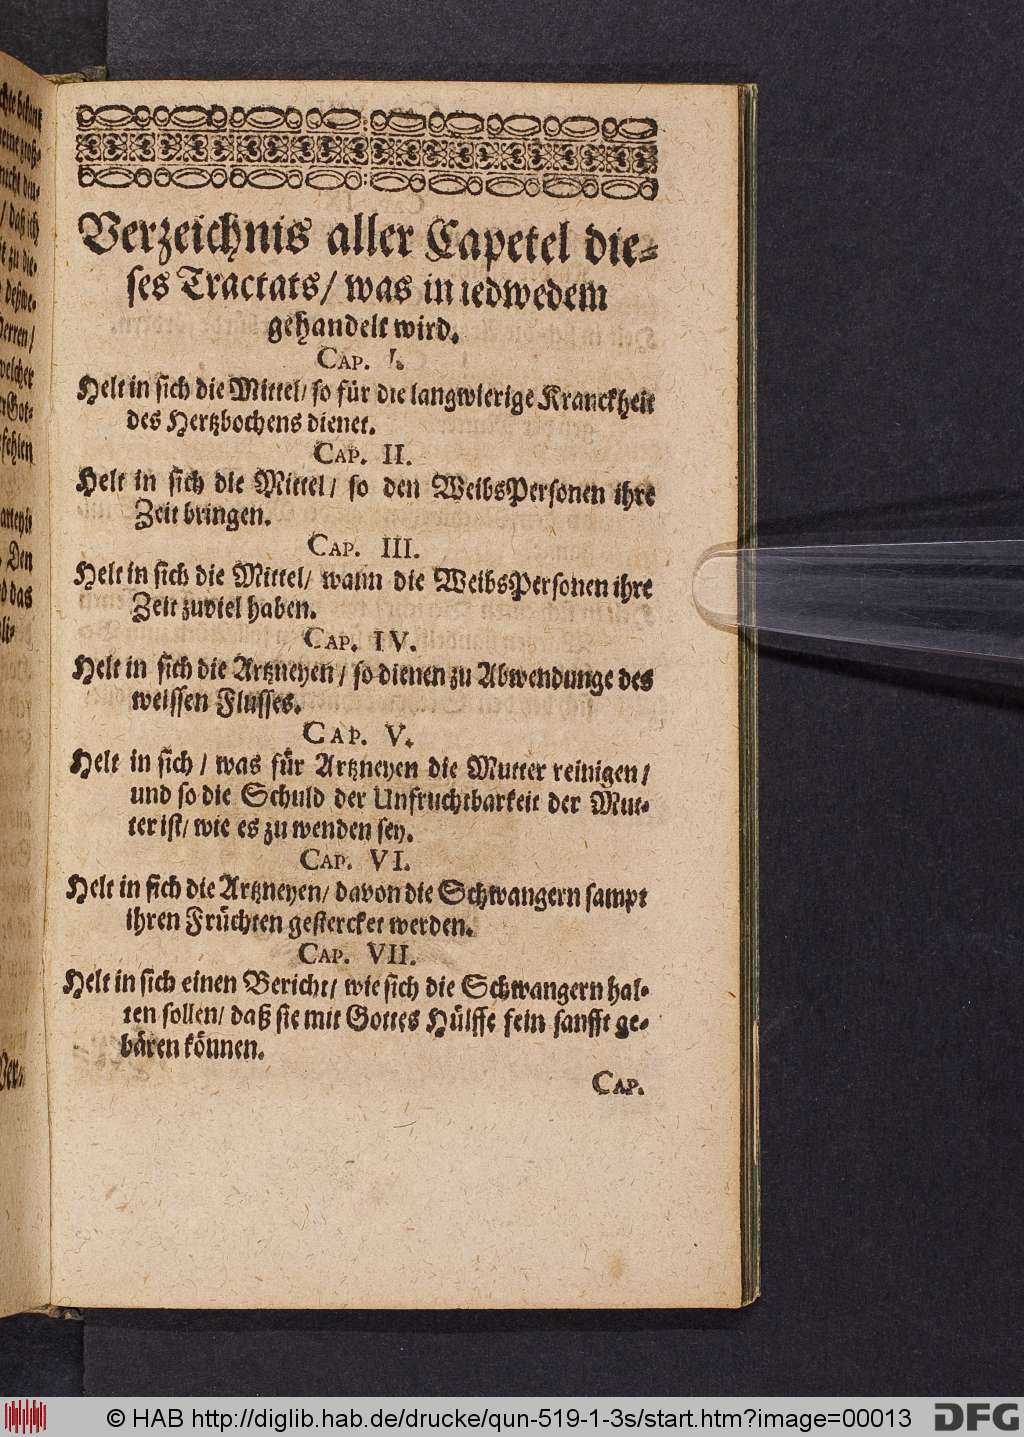 Verzeichnis aller Capetel die-
ses Tractats/ was in iedwedem
gehandelt wird.
CAP. I.
Helt in sich die Mittel/ so für die langwierige Kranckheit
des Hertzbochens dienet.
CAP. II.
Helt in sich die Mittel/ so den WeibsPersonen ihre
Zeit bringen.
CAP. III.
Helt in sich die Mittel/ wann die WeibsPersonen ihre
Zeit zuviel haben.
CAP. IV.
Helt in sich die Artzneyen/ so dienen zu Abwendunge des
weissen Flusses.
CAP. V.
Helt in sich/ was für Artzneyen die Mutter reinigen/
und so die Schuld der Unfruchtbarkeit der Mut-
ter ist/ wie es zu wenden sey.
CAP. VI.
Helt in sich die Artzneyen/ davon die Schwangern sampt
ihren Früchten gestercket werden.
CAP. VII.
Helt in sich einen Bericht/ wie sich die Schwangern hal-
ten sollen/ daß sie mit Gottes Hülffe fein sanfft ge-
bären können.
CAP.
© HAB http://diglib.hab.de/drucke/qun-519-1-3s/start.htm?image=00013
DFG